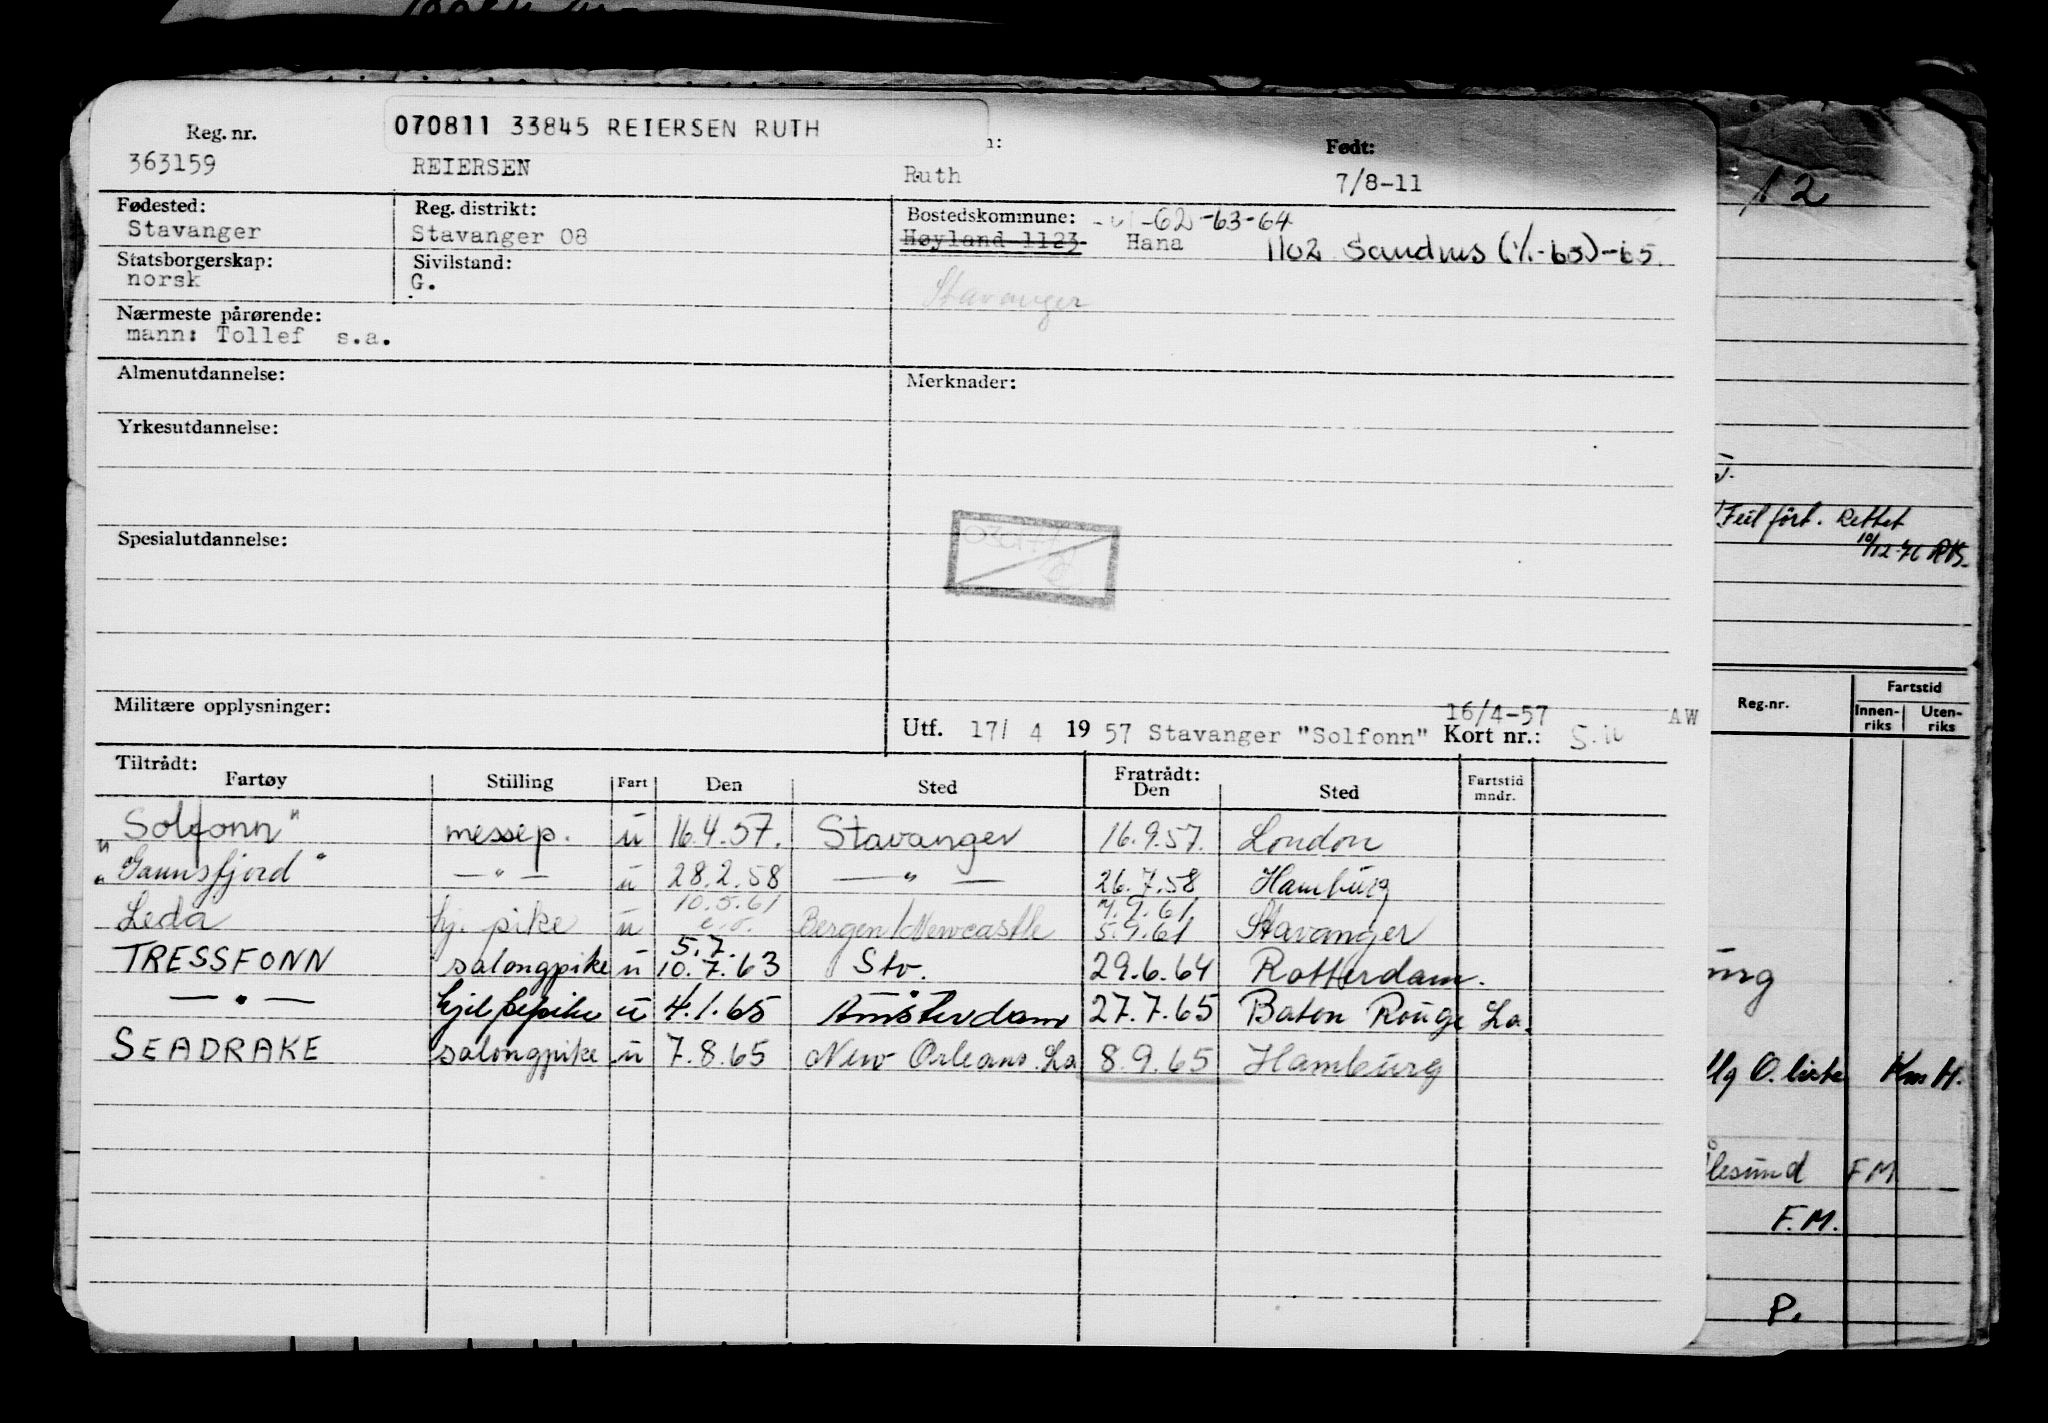 070811 33845 REIERSEN RUTH
Reg. nr. Født:
363159 REIERSEN Ruth 7/8-11
Fødested: Reg. distrikt: Bostedskommune: -62-63-64
Stavanger Stavanger 08 Høyland 1123 Hana 1102 Sandnes (1/1-65)-65
Statsborgerskap: Sivilstand:
norsk G. Stavanger
Nærmeste pårørende:
mann: Tollef s.a.
Almenutdannelse: Merknader:
Yrkesutdannelse:
Spesialutdannelse:
Militære opplysninger: 16/4-57 AW
Utf. 17/ 4 1957 Stavanger "Solfonn" Kort nr.:
Tiltrådt: Fratrådt:
Fartøy Stilling Fart Den Sted Den Sted Fartstid mndr.
"Solfonn" messep. u 16.4.57. Stavanger 16.9.57. London
"Gannsfjord" — " — u 28.2.58 — " — 26.7.58 Hamburg
10.5.61 7.9.61
Leda hj. pike u e.o. Bergen/Newcastle 5.9.61 Stavanger
5.7.
TRESSFONN salongpike u 10.7.63 Stv. 29.6.64 Rotterdam.
— " — u 4.1.65 Amsterdam 27.7.65 Baton Rouge La.
SEADRAKE salongpike u 7.8.65 New Orleans. La 8.9.65 Hamburg
12
Feil ført. Rettet
10/12-76
Reg.nr. Fartstid
Innenriks Utenriks
O. liste
lesund FM
F.M.
P.